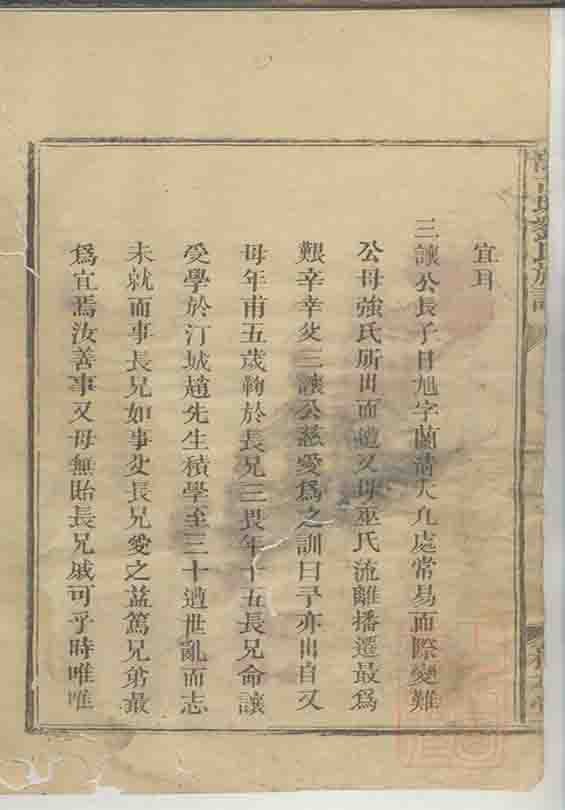 宜耳
三讓公長子日旭字蘭漪大凡處常易而際變難
公母強氏所出而遭父母巫氏流離播遷最爲
艱辛幸父三讓公慈愛爲之訓曰予亦出自又
母年甫五歲鞠於長兄三畏年十五長兄命讓
受學於汀城趙先生積學至三十遭世亂而志
未就而事長兄如事父長兄愛之益篤兄弟最
爲宜焉汝善事又母無貽長兄戚可乎時唯唯
劉氏族譜